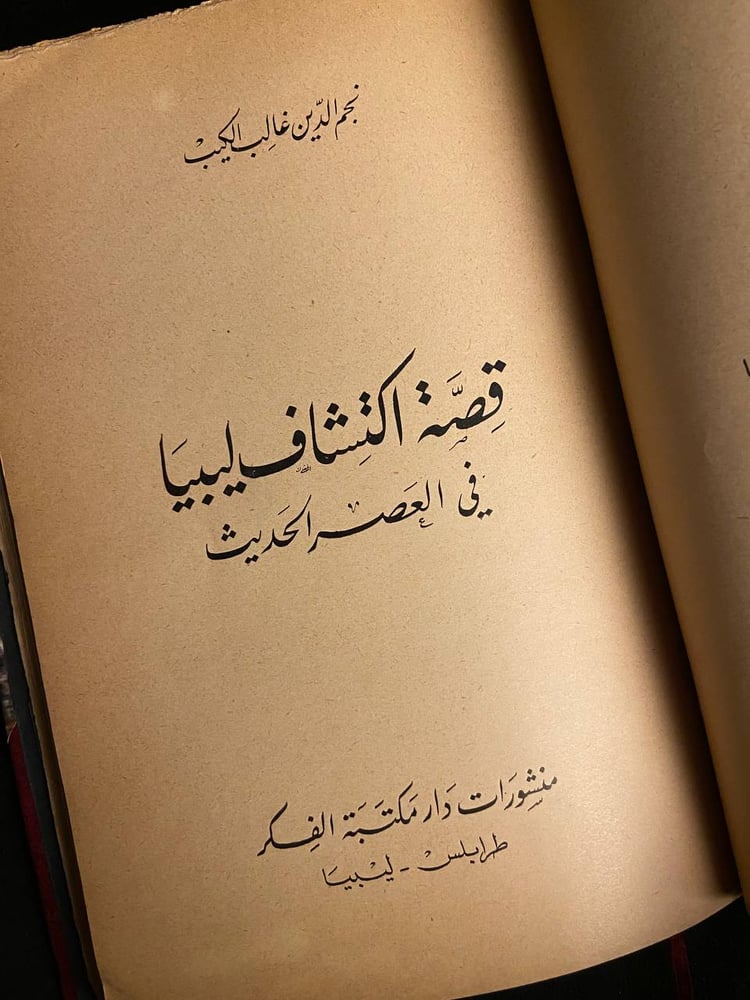 نجم الدّين غالب الكيبْ
قِصَّة اكتِشاف ليبيَا
في العَصر الحَديث
منشورَات دَار مَكتَبَة الفِكر
طرابلسْ - ليْبيَا